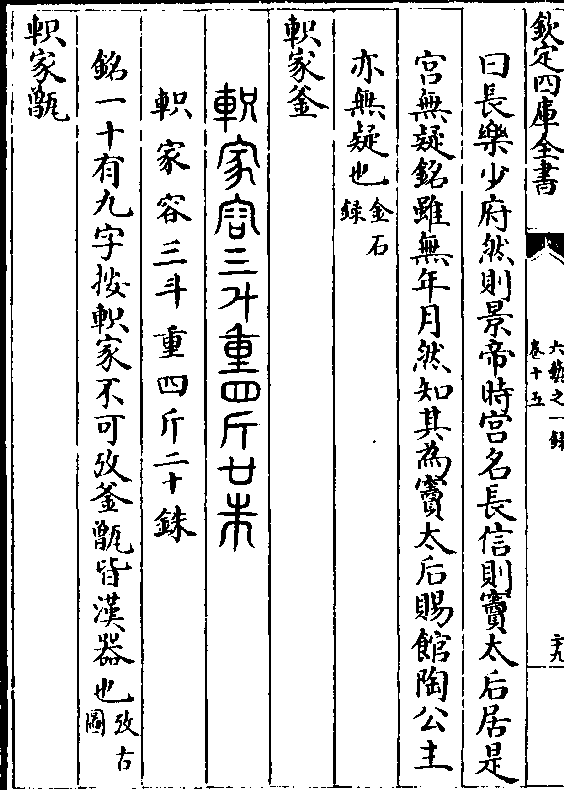 欽定四庫全書
六藝之一録
卷十五
二十九
曰長樂少府然則景帝時宫名長信則竇太后居是
宫無疑銘雖無年月然知其為竇太后賜館陶公主
亦無疑也金石
録
軹家釜
軹家容三斗重四斤廿朱
軹家容三斗重四斤二十銖
銘一十有九字按軹家不可攷釜甑皆漢器也攷古
圖
軹家甑